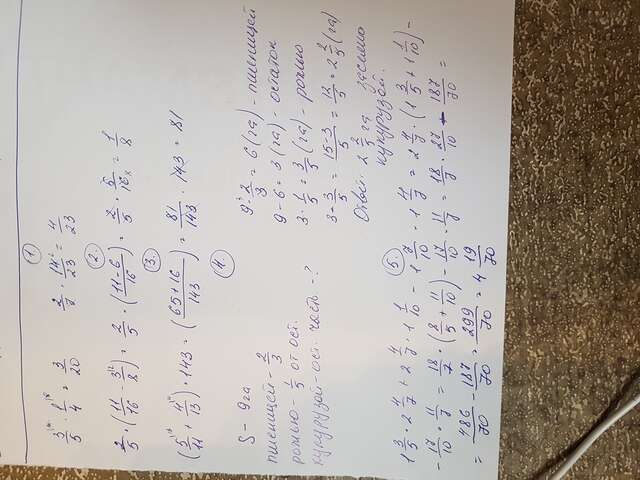 1.
3/5 · 1/4 = 3/20   2/7 · 14²/23 = 4/23
2.
2/5 · (11/16 - 3\²/8) = 2/5 · (11-6/16) = 2/5 · 5/16₈ = 1/8
3.
(5/11 + 4/13) · 143 = (65+16/143) = 81/143 · 143 = 81
4.
S - 9га
пшеницей - 2/3
рожью - 1/5 от ост.
кукурузой - ост. часть - ?
9³ · 2/3 = 6 (га) - пшеницей
9 - 6 = 3 (га) - остаток
3 · 1/5 = 3/5 (га) - рожью
3 - 3/5 = 15-3/5 = 12/5 = 2 2/5 (га)
Ответ: 2 2/5 га засеяно
кукурузой.
5.
1 3/5 · 2 4/7 + 2 4/7 · 1 1/10 - 1 7/10 · 1 4/7 = 2 4/7 · (1 3/5 + 1 1/10) -
- 17/10 · 11/7 = 18/7 · (8/5 + 11/10) - 17/10 · 11/7 = 18/7 · 27/10 - 187/70 =
= 486/70 - 187/70 = 299/70 = 4 19/70